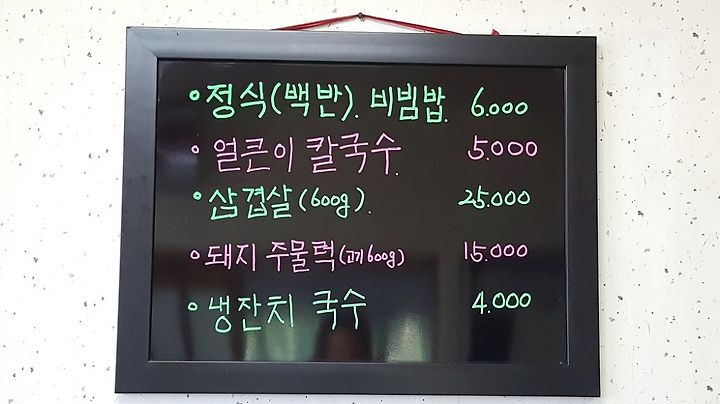 • 정식(백반). 비빔밥. 6.000
• 얼큰이 칼국수. 5.000
• 삼겹살(600g). 25.000
• 돼지 주물럭(고기600g) 15.000
• 냉잔치 국수 4.000